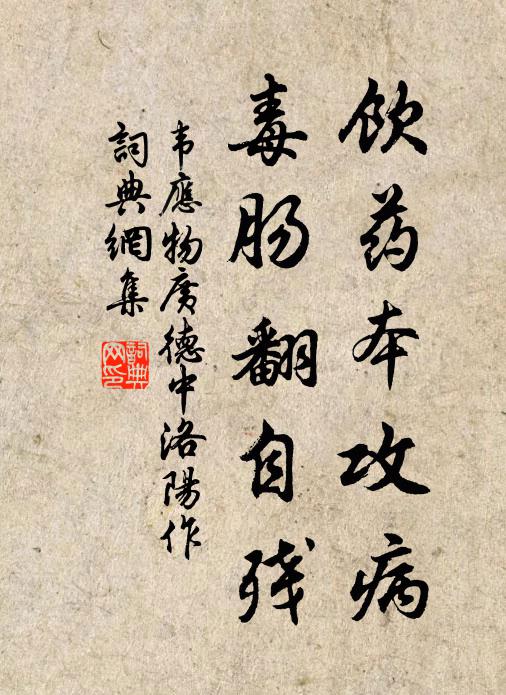 饮药本攻病
毒肠翻自残
韦應物廣德中洛陽作
詞典網集
詞典
网印